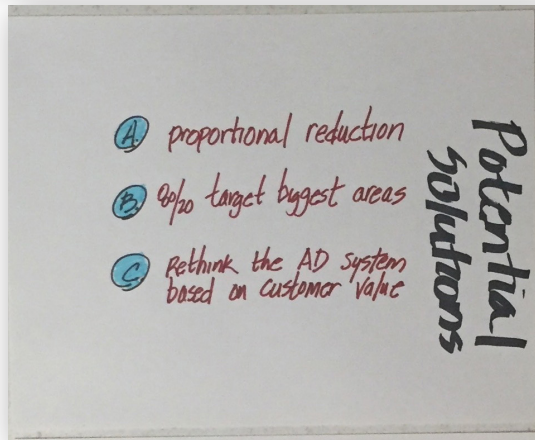 Potential
Solutions
A. proportional reduction
B. 80/20 target biggest areas
C. Rethink the AD System
based on customer value